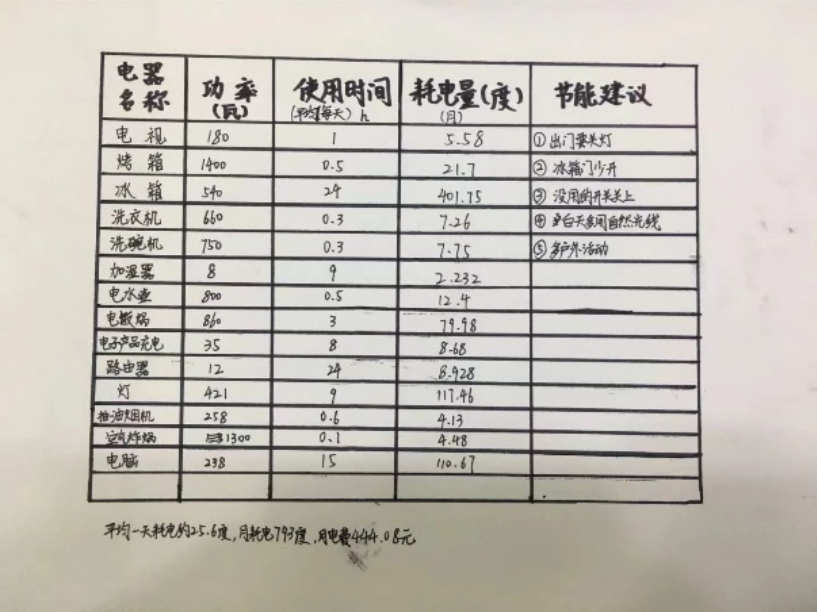 电器名称 功率(瓦) 使用时间(平均每天) h 耗电量(度)(月) 节能建议
电视 180 1 5.58 ①出门要关灯
烤箱 1400 0.5 21.7 ②冰箱门少开
冰箱 540 24 401.75 ③没用的开关关上
洗衣机 660 0.3 7.26 ④白天多用自然光线
洗碗机 750 0.3 7.75 ⑤多户外活动
加湿器 8 9 2.232
电水壶 800 0.5 12.4
电饭锅 860 3 79.98
电子产品充电 35 8 8.68
路由器 12 24 8.928
灯 421 9 117.46
抽油烟机 258 0.6 4.13
空气炸锅 1300 0.1 4.48
电脑 238 15 110.67
平均一天耗电约25.6度,月耗电793度,月电费444.08元